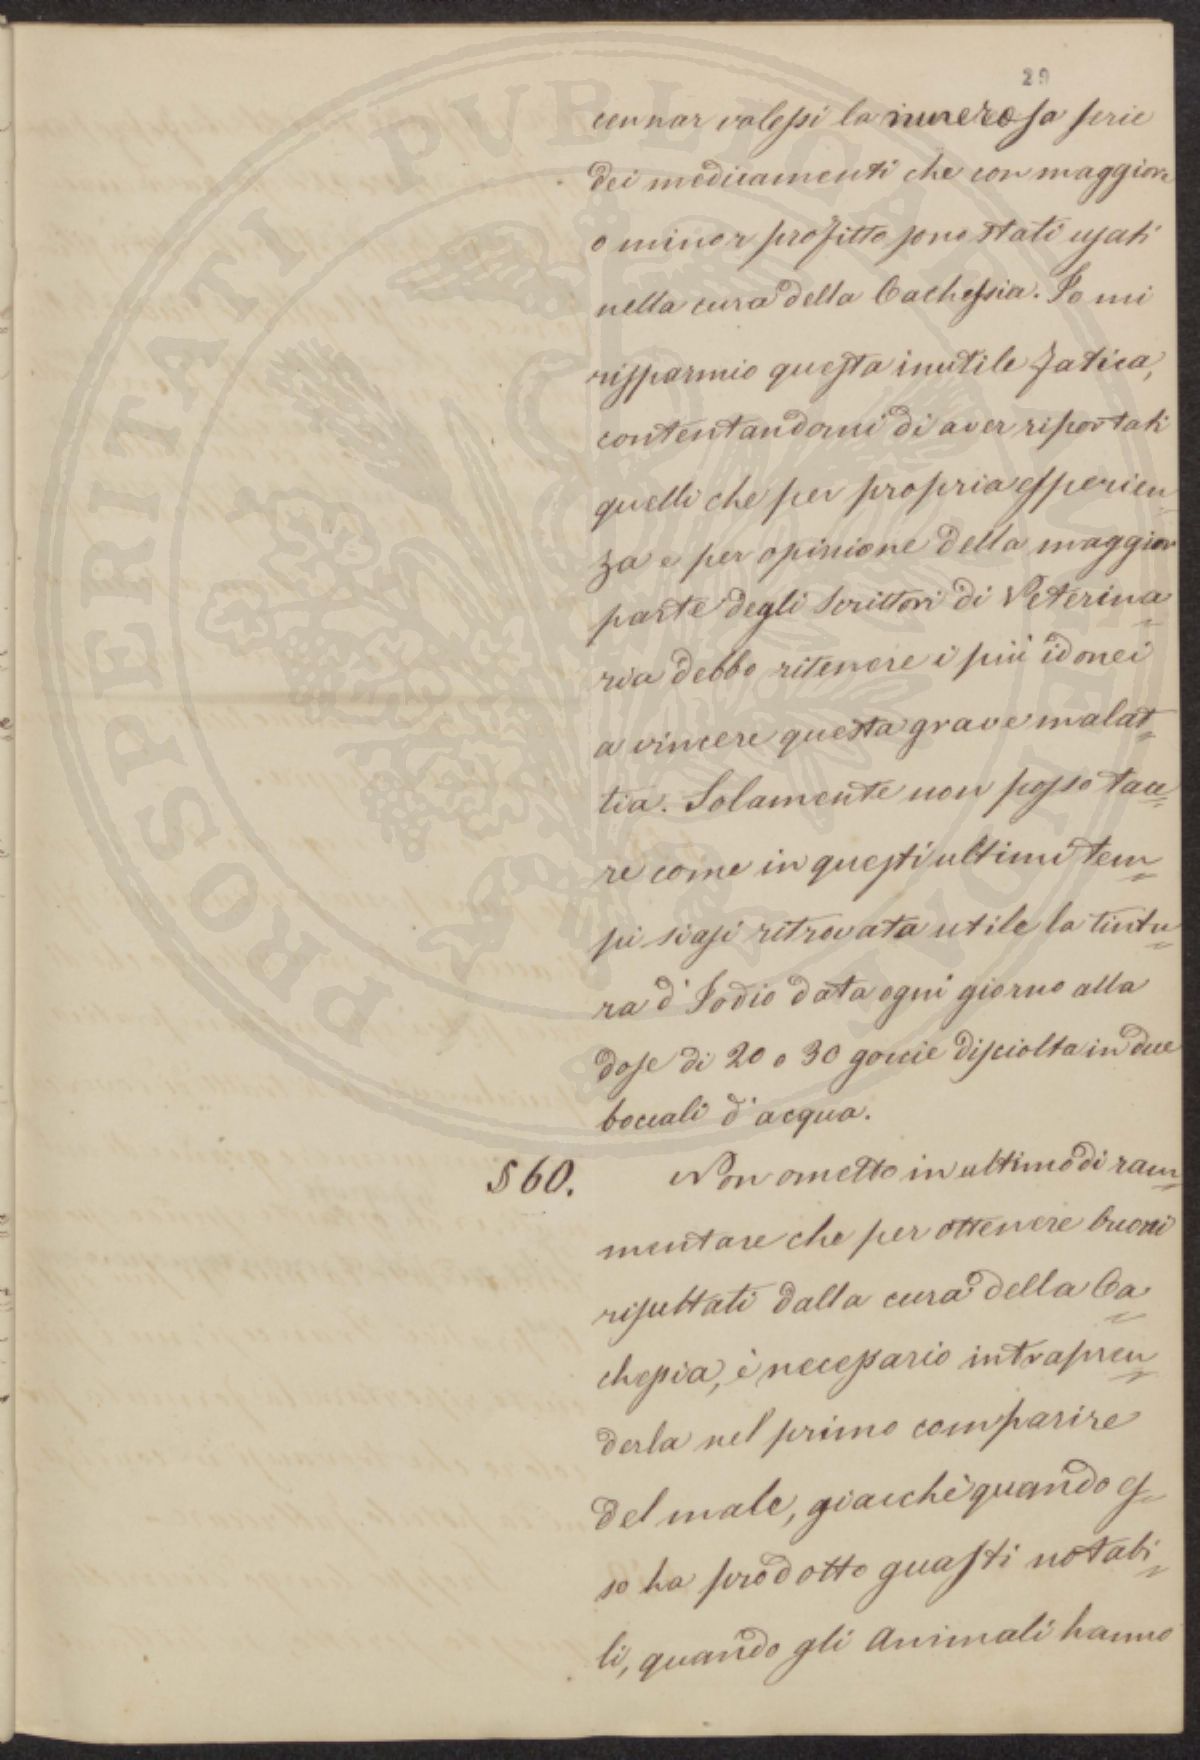 29
cennar volessi la numerosa serie
dei medicamenti che con maggiore
o minor profitto sono stati usati
nella cura della Cachessia. Io mi
risparmio questa inutile fatica,
contentandomi di aver riportati
quelli che per propria esperien
za e per opinione della maggior
parte degli Scrittori di Veterina
ria debbo ritenere i più idonei
a vincere questa grave malat=
tia. Solamente non posso tace=
re come in questi ultimi tem=
pi siasi ritrovata utile la tintu=
ra d' Iodio data ogni giorno alla
dose di 20 o 30 goccie disciolta in due
boccali d' acqua.
§ 60. Non ometto in ultimo di ram=
mentare che per ottenere buoni
risultati dalla cura della Ca=
chessia, è necessario intrapren=
derla nel primo comparire
del male, giacchè quando es=
so ha prodotto guasti notabi=
li, quando gli Animali hanno
PROSPERITATI PUBLICAE